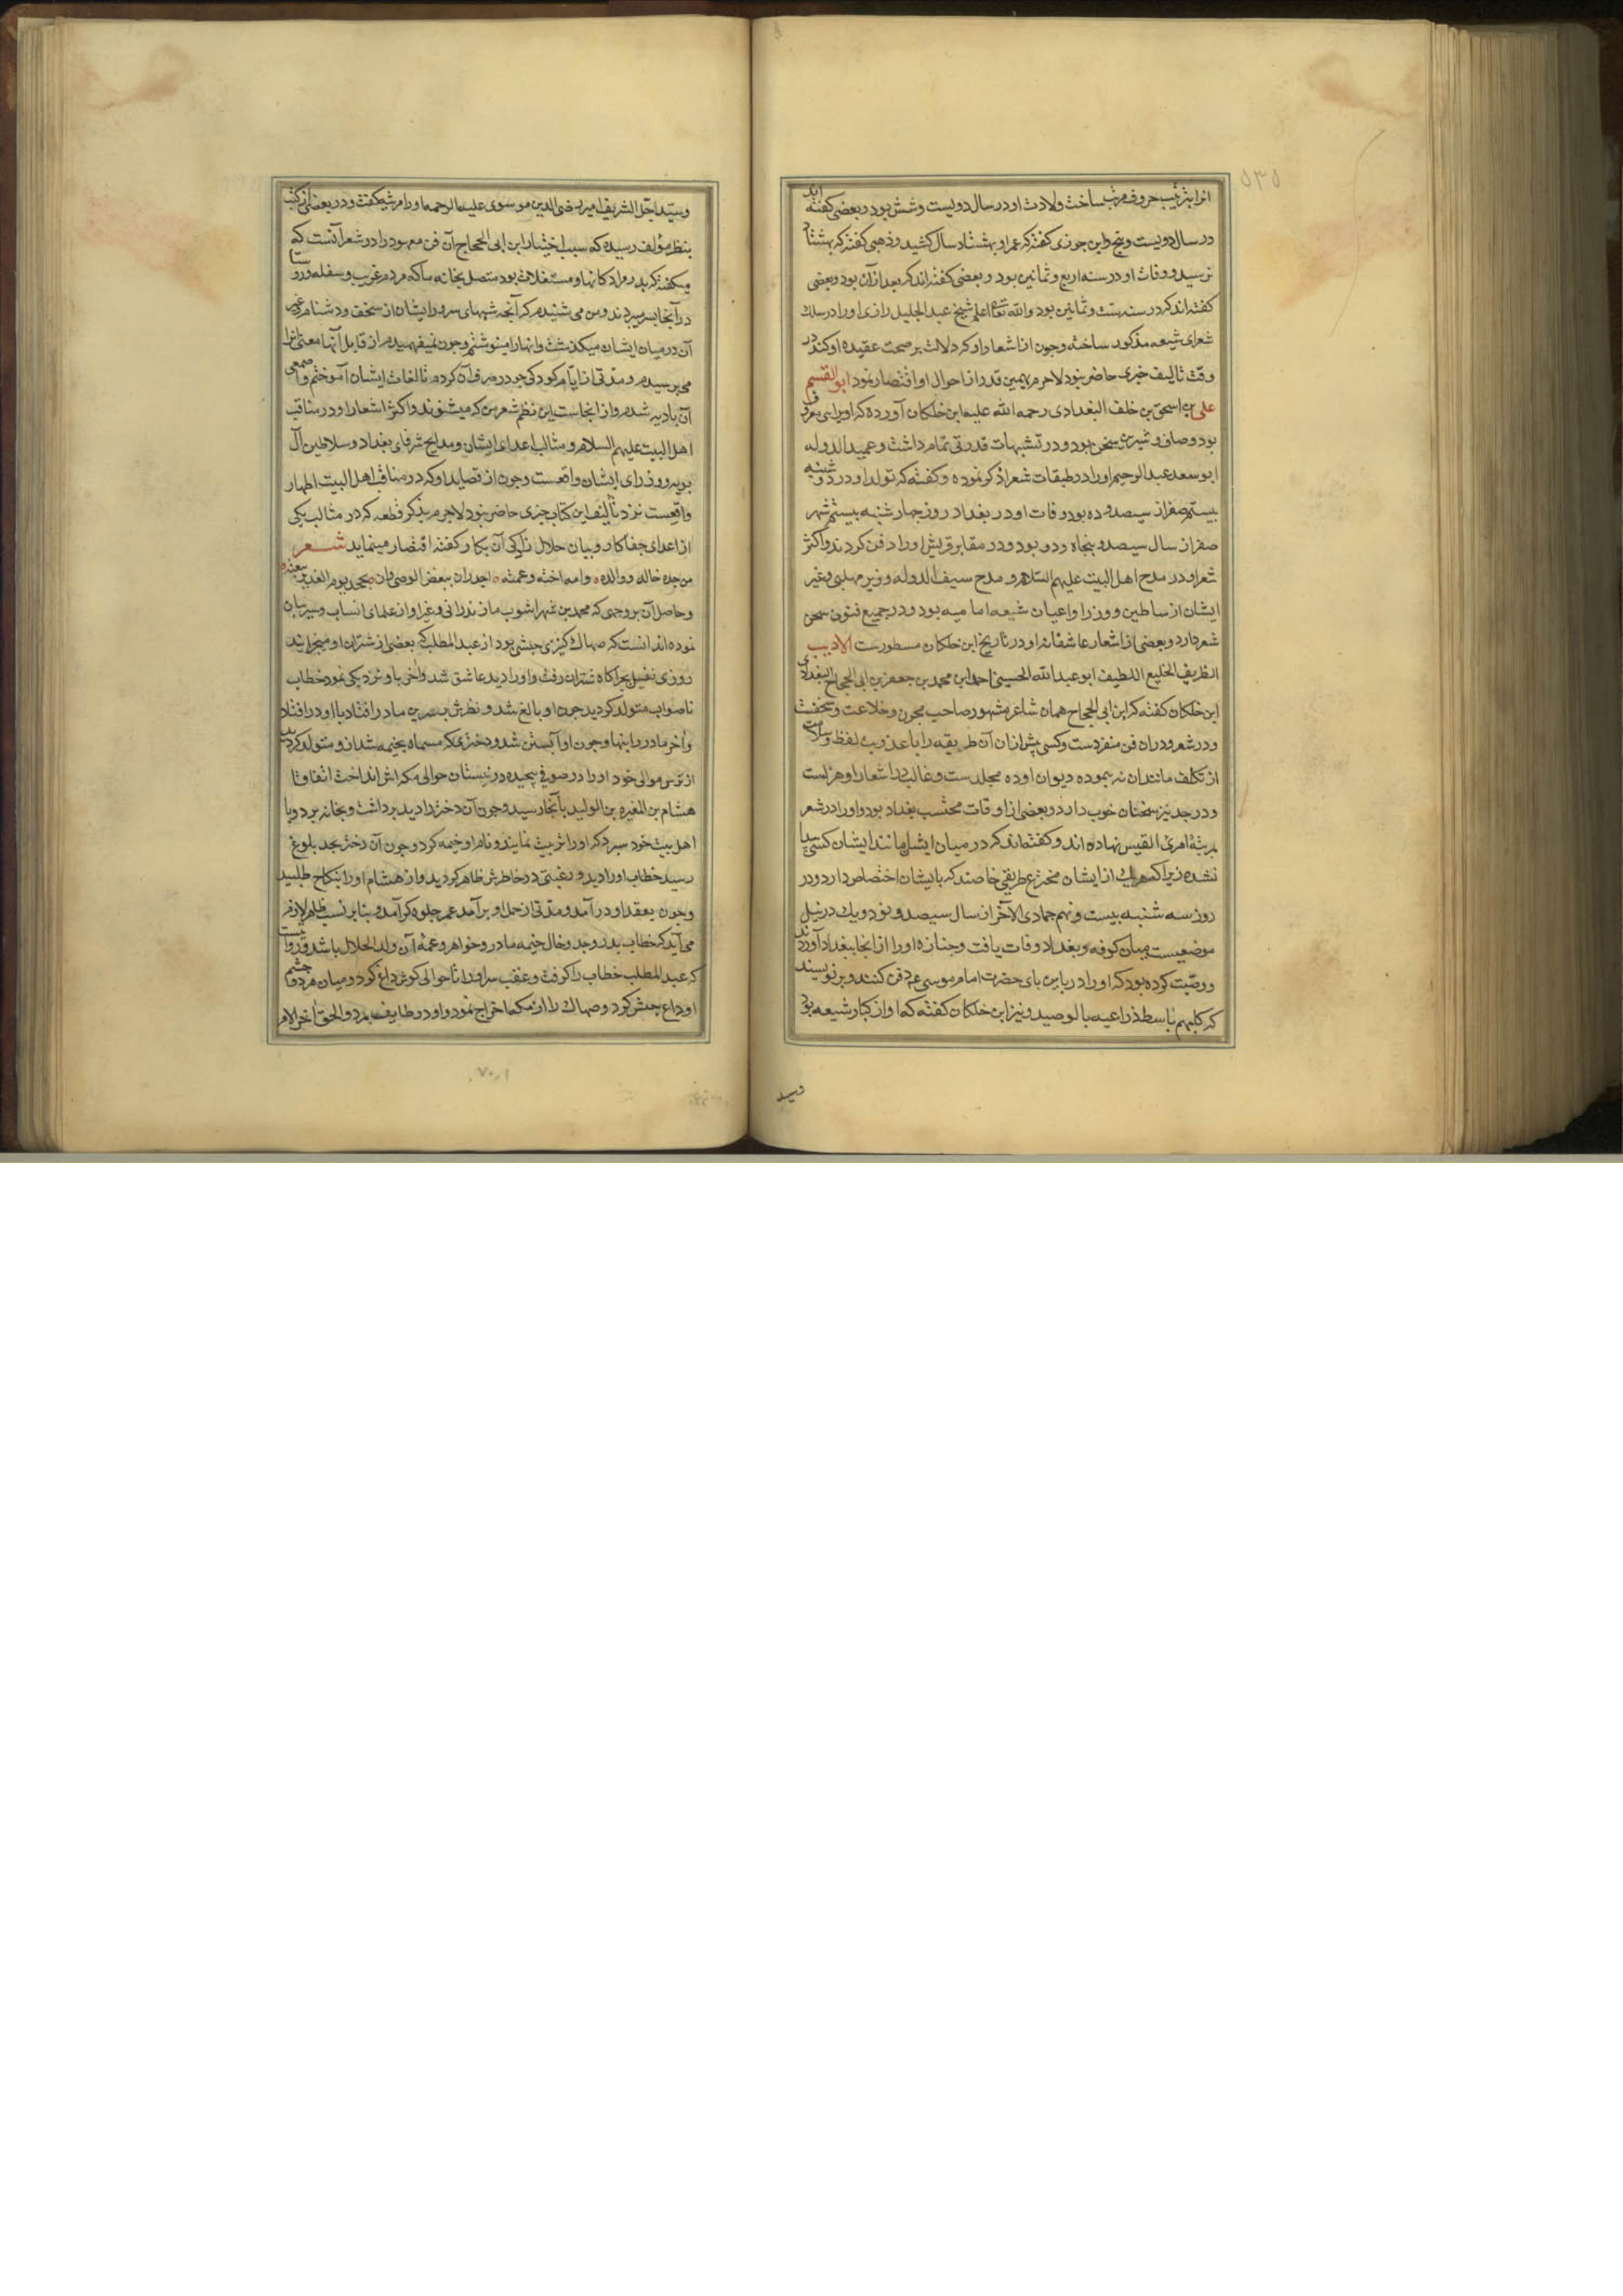 ۵۳۵
انرا بترتیب حروف مرتب ساخت ولادت او در سال دویست وشش بود و بعضی کفته اند
در سال دویست و پنج و ابن جوزی کفته که عمر او بهشتاد سال کشید و ذهبی کفته که بهشتاد
نرسید و وفات او در سنه اربع و ثمانین بود و بعضی کفته اند که بعد از آن بود و بعضی
کفته اند که در سنه ست و ثمانین بود والله تعالی اعلم شیخ عبد الجلیل رازی او را در سلک
شعرای شیعه مذکور ساخته و چون از اشعار او که دلالت بر صحت عقیده او کند در
وقت تالیف چیزی حاضر نبود لاجرم بهمین قدر از احوال او اقتصار نمود ابو القسم
علی بن اسحق بن خلف البغدادی رحمه الله علیه ابن خلکان آورده که او بزاهی معروف
بود وصاف و شیرین سخن بود و در تشبیهات قدرتی تمام داشت و عمید الدوله
ابو سعد عبد الرحیم او را در طبقات شعرا ذکر نموده و کفته که تولد او در دوشنبه
بیستم صفر از سیصد و ده بود و وفات او در بغداد روز چهار شنبه بیستم شهر
صفر از سال سیصد و پنجاه و دو بود و در مقابر قریش او را دفن کردند و اکثر
شعر او در مدح اهل البیت علیهم السلام و مدح سیف الدوله و زیر مهلبی و غیر
ایشان از سلاطین و وزرا و اعیان شیعه امامیه بود و در جمیع فنون سخن
شعر دارد و بعضی از اشعار عاشقانه او در تاریخ ابن خلکان مسطورست الادیب
الظریف الخلیع اللطیف ابو عبد الله الحسین احمد بن محمد بن جعفر بن ابی الحجاج البغدادی
ابن خلکان کفته که ابن ابی الحجاج همان شاعر مشهور صاحب مجون و خلاعت و سخفت
و در شعر و دران فن منفردست و کسی پیش از ان آن طریقه را با عذوبت لفظ و سلامت
از تکلف مانند ان نه پیموده دیوان او ده مجلدست و غالب در اشعار او هزلست
و در جد نیز سخنان خوب دارد و بعضی از اوقات محتسب بغداد بود و او را در شعر
بمرتبه امرئ القیس نهاده اند و کفته اند که در میان ایشان مانند ایشان کسی پیدا
نشده زیرا که هریک از ایشان مخترع طریقی خاصند که بایشان اختصاص دارد و در
روز سه شنبه بیست و نهم جمادی الآخر از سال سیصد و نود و یک در نیل
موضعیست میان کوفه و بغداد وفات یافت و جنازه او را از انجا ببغداد آوردند
و وصیت کرده بود که او را در پایین پای حضرت امام موسی ع دفن کنند و بر نویسند
که کلبهم باسط ذراعیه بالوصید و نیز ابن خلکان کفته که او از کبار شیعه بود
وسید
وسید اجل الشریف امیر رضی الدین موسوی علیه الرحمه او را مرثیه کفت و در بعضی از کتب
بنظر مؤلف رسیده که سبب اختیار ابن ابی الحجاج آن فن معهود را در شعر آنست که
میکفته که پدر مرا دکانها و مستغلات بود متصل بخانه ما که مردم غریب و سفله و روستا
در آنجا بسر میبردند و من می شنیدم که آنچه شبهای سرد را ایشان از سخف و دشنام
آن در میان ایشان میکذشت وانها را مینوشتم و چون نمیفهمیدم از قایل آنها معنی انرا
می پرسیدم و مدتی از ایام کودکی خود را صرف آن کردم تا لغات ایشان آموختم و اصمعی
آن بادیه شدم و از انجاست این نظم شعر من که میشنوند و اکثر اشعار او در مناقب
اهل البیت علیهم السلام و مثالب اعدای ایشان و مدایح شرفای بغداد و سلاطین آل
بویه و وزرای ایشان واقعست و چون از قصاید او که در مناقب اهل البیت اطهار
واقعست نزد تألیف این کتاب چیزی حاضر نبود لاجرم بذکر قطعه که در مثالب یکی
از اعدای جفاکار و بیان حلال زادکی آن بکار کفته اقتصار مینماید شعر
من جده خاله ووالده وامه اخته وعمته اجدر ان یبغض الوصی وان یجحد یوم الغدیر بیعته
و حاصل آن بر وجهی که محمد بن شهر اشوب مازندرانی و غیر او از علمای انساب و سیر بیان
نموده اند انست که صهاک کنیزی حبشی بود از عبد المطلب که بعضی از شتران او میچرانید
روزی نفیل بچراکاه شتران رفت و او را دید عاشق شد و اخر با او نزدیکی نمود خطاب
ناصواب متولد کردید چون او بالغ شد و نظرش بسرین مادر افتاد با او در افتاد
واخر مادر را بنهاد چون او آبستن شد و دختری که مسماه بخیمه شد از و متولد کردید
از ترس موالی خود او را در صوفی پیچیده در نیستان حوالی مکه اش انداخت اتفاقا
هشام بن المغیره بن الولید بآنجا رسید و چون آن دختر را دید برداشت و بخانه برد و با
اهل بیت خود سپرد که او را تربیت نمایند و نام او خیمه کرد و چون آن دختر بحد بلوغ
رسید خطاب او را دید و رغبتی در خاطرش ظاهر کردید و از هشام او را بنکاح طلبید
و چون بعقد او در آمد و مدتی از حمل او بر آمد عمر جلوه کر آمد و بنا بر نسب ظاهر لازم
می آید که خطاب پدر و جد و خال خیمه مادر و خواهر و عمه آن ولد الحلال باشد و روایتست
که عبد المطلب خطاب را کرفت و عقب سر او را تا حوالی کوش داغ کرد و میان هر دو چشم
او داغ حبش کرد و صهاک را از مکه اخراج نمود و او در طایف بمرد والحق اخر الامر
۷۰۰۱